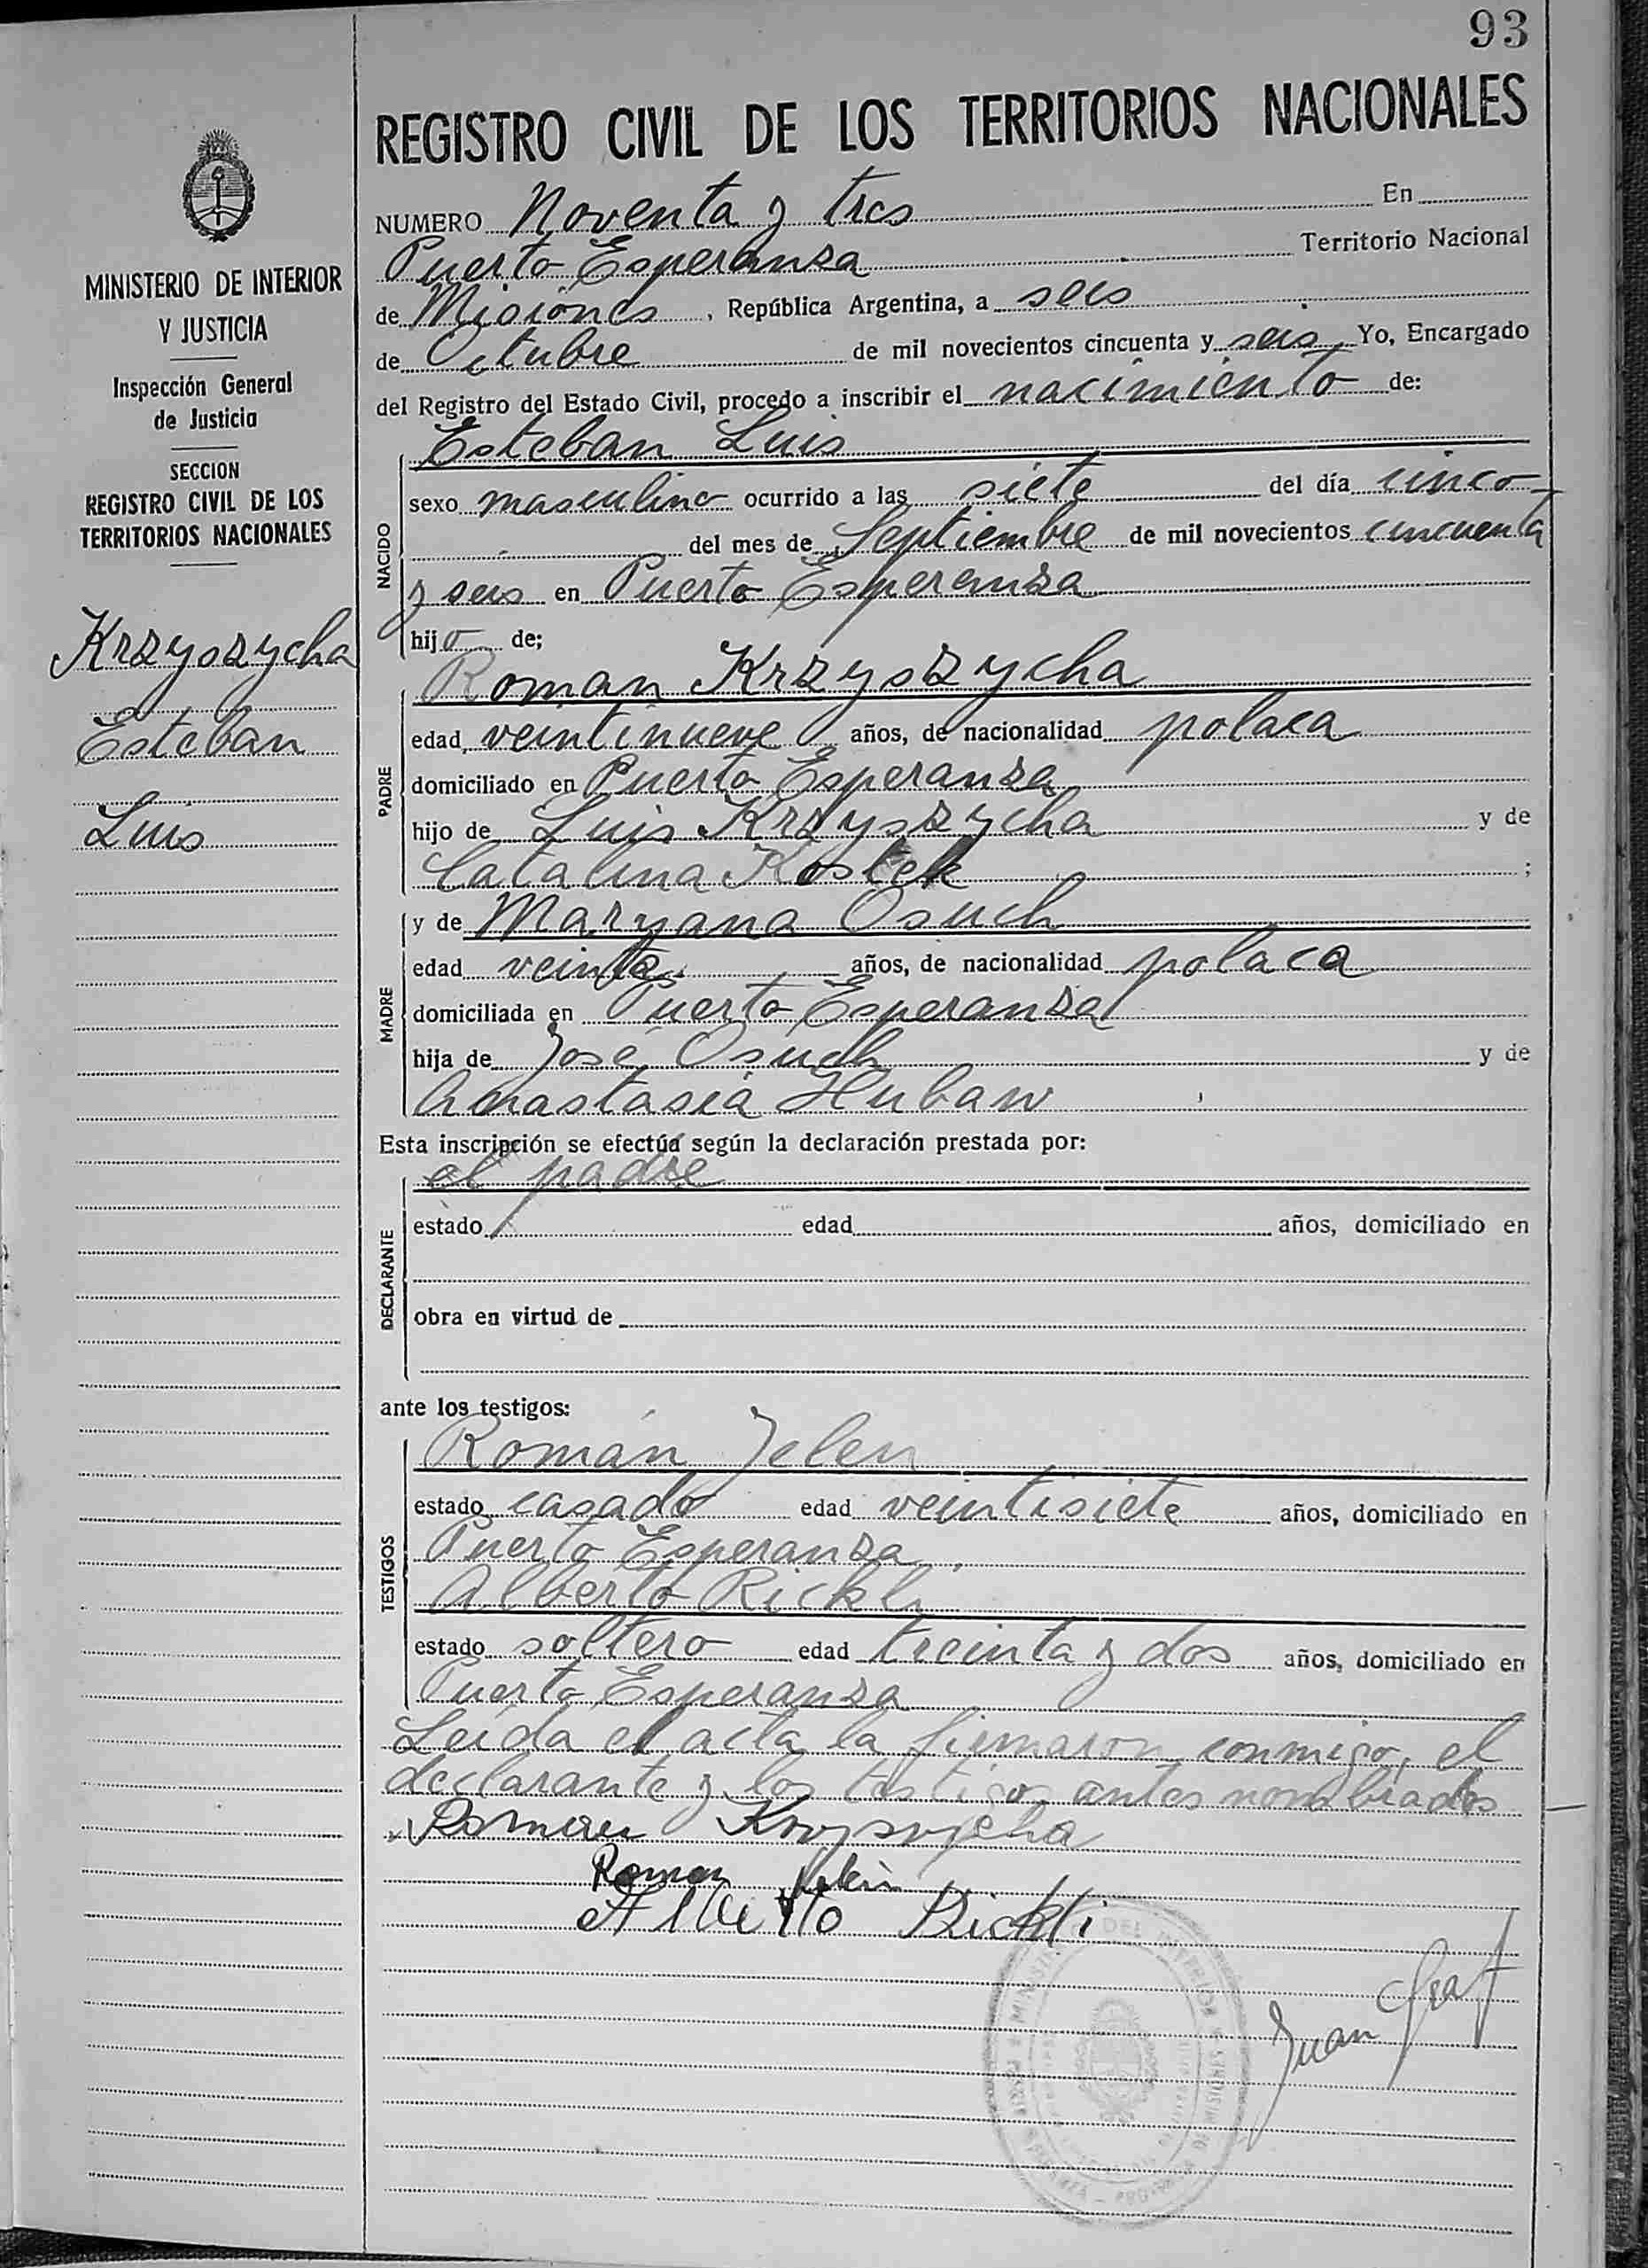 93
REGISTRO CIVIL DE LOS TERRITORIOS NACIONALES
MINISTERIO DE INTERIOR
Y JUSTICIA
Inspección General
de Justicia
SECCION
REGISTRO CIVIL DE LOS
TERRITORIOS NACIONALES
Krzyszycha
Esteban
Luis
NUMERO Noventa y tres En
Puerto Esperanza Territorio Nacional
de Misiones, República Argentina, a seis
de Octubre de mil novecientos cincuenta y seis, Yo, Encargado
del Registro del Estado Civil, procedo a inscribir el nacimiento de:
NACIDO
Esteban Luis
sexo masculino ocurrido a las siete del día cinco
del mes de Septiembre de mil novecientos cincuenta
y seis en Puerto Esperanza
hijo de;
PADRE
Roman Krzyszycha
edad veintinueve años, de nacionalidad polaca
domiciliado en Puerto Esperanza
hijo de Luis Krzyszycha y de
Catalina Kostek ;
MADRE
y de Maryana Osuch
edad años, de nacionalidad polaca
domiciliada en Puerto Esperanza
hija de José Osuch y de
Anastasia Hubaw
Esta inscripción se efectúa según la declaración prestada por:
DECLARANTE
el padre
estado edad años, domiciliado en
obra en virtud de
ante los testigos:
TESTIGOS
Román Jelen
estado casado edad veintisiete años, domiciliado en
Puerto Esperanza
Alberto Rickli
estado soltero edad treinta y dos años, domiciliado en
Puerto Esperanza
Leída el acta la firmaron conmigo, el
declarante y los testigos antes nombrados
Roman Krzyszycha
Roman Jelen
Alberto Rickli
Juan Graf